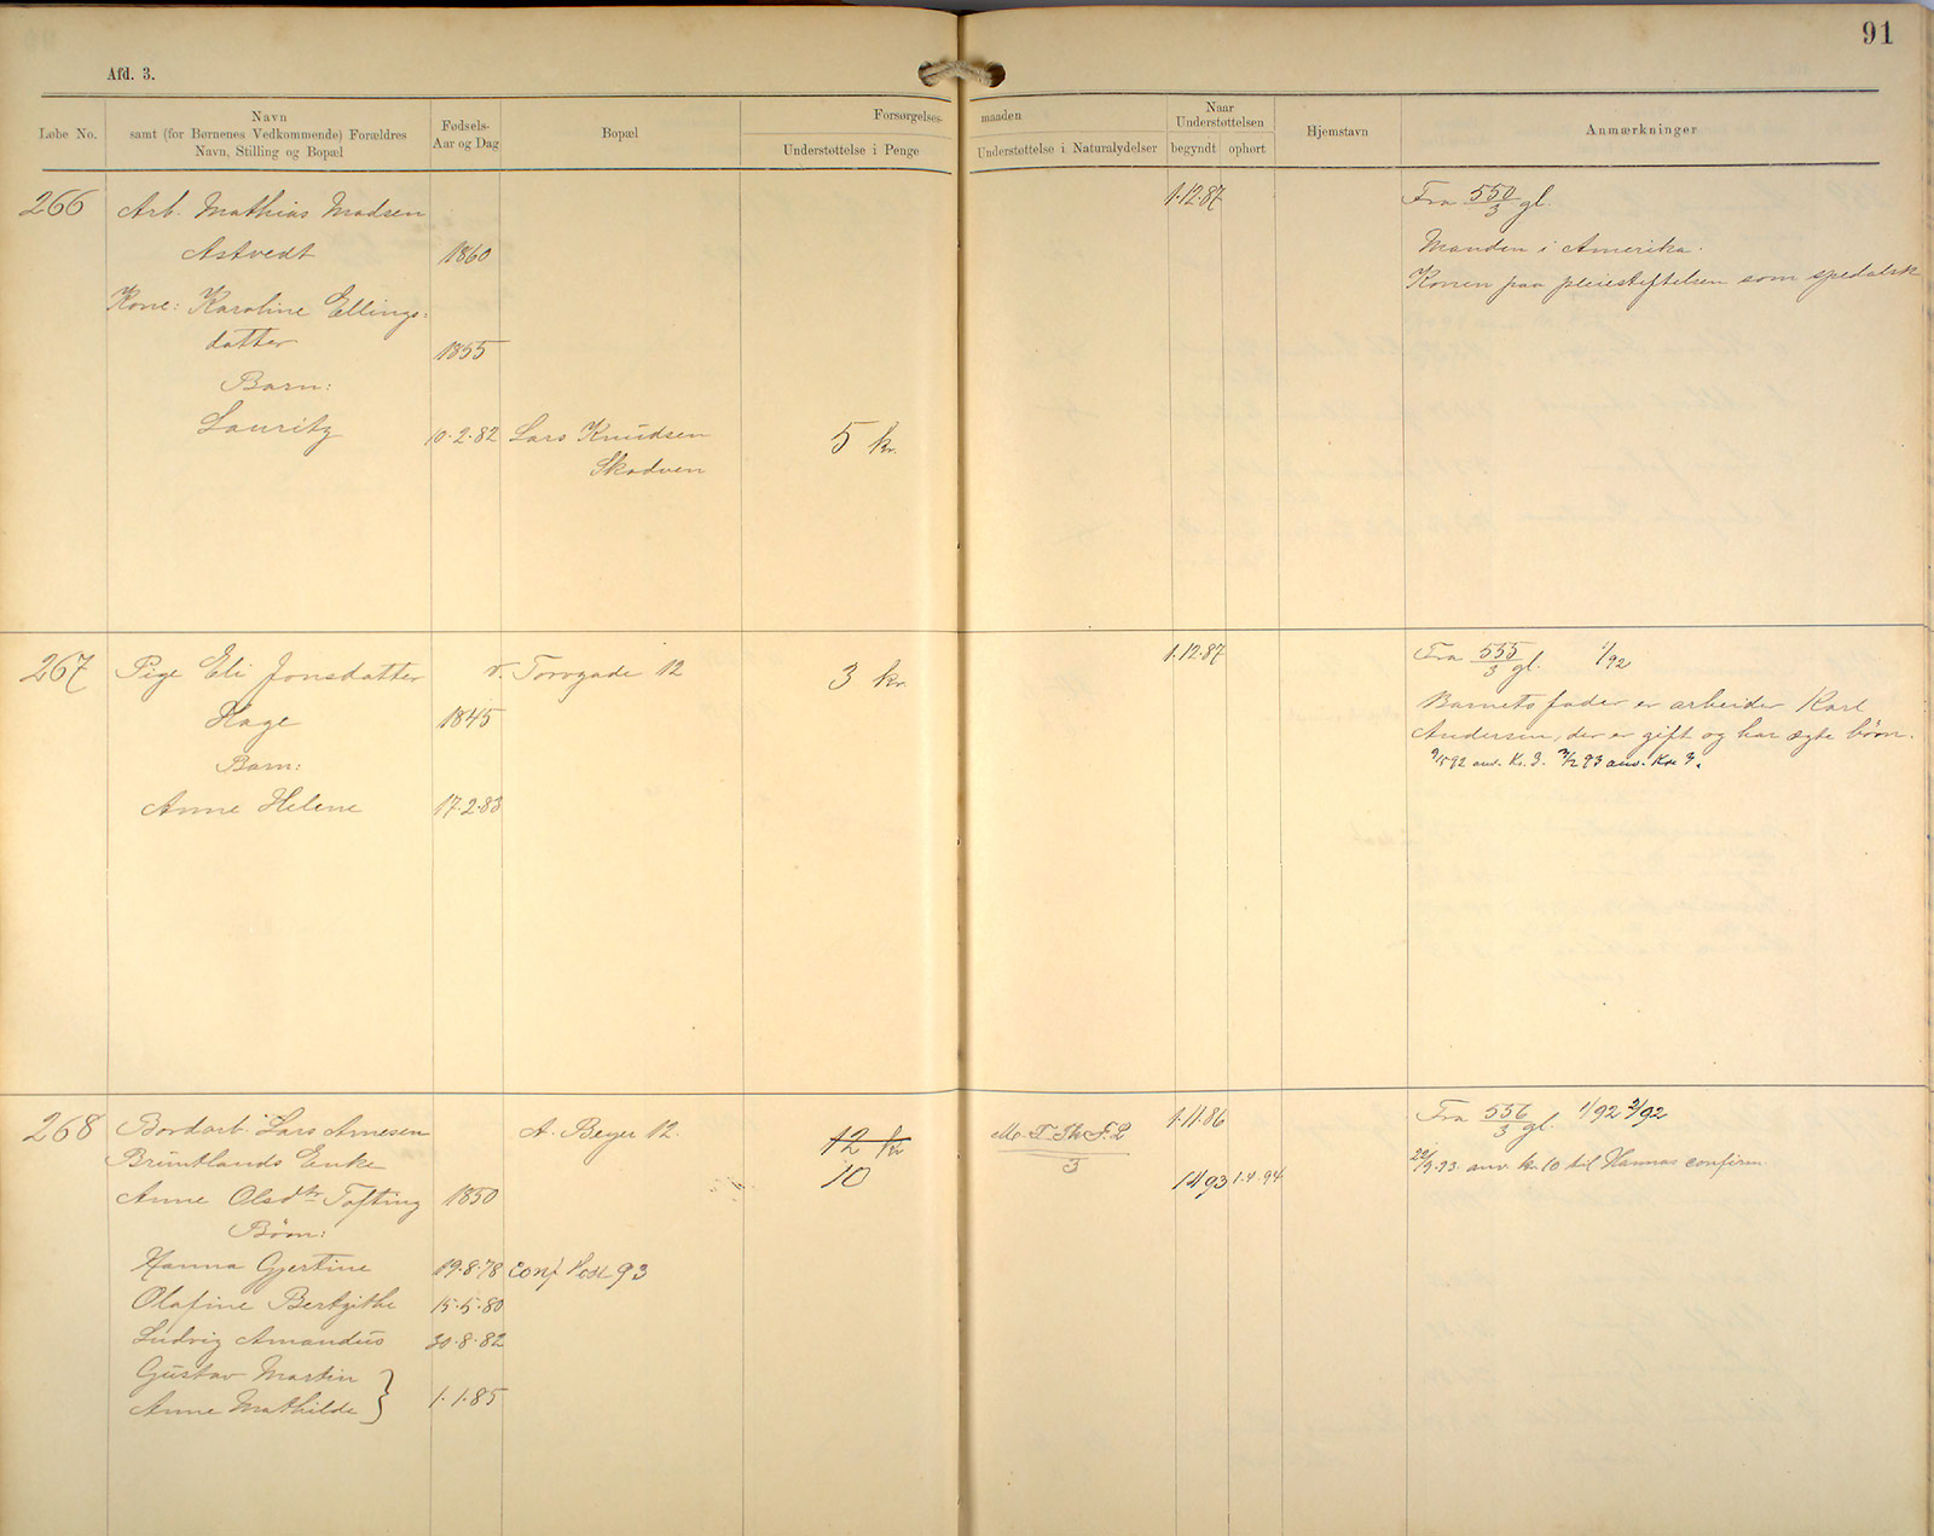 91
Afd. 3.
Løbe No.
Navn
samt (for Børnenes Vedkommende) Forældres
Navn, Stilling og Bopæl
Fødsels-
Aar og Dag
Bopæl
Forsørgelses-
maaden
Understøttelse i Penge
Understøttelse i Naturalydelser
Naar
Understøttelsen
begyndt
ophørt
Hjemstavn
Anmærkninger
266
Arb. Mathias Madsen
1.12.87
Fra 550/3 gl.
Astvedt
1860
Manden i Amerika.
Konen paa pleiestiftelsen som spedalsk
Kone: Karoline Ellings-
datter
1855
Barn:
Lauritz
10.2.82
Lars Knudsen
5 kr.
Skodven
267
Pige Eli Jonsdatter
v. Torvgade 12
3 kr.
1.12.87
Fra 555/3 gl. 1/92
Hage
1845
Barnets fader er arbeider Karl
Andersen, der er gift og har ægte børn.
Barn:
Anne Helene
17.2.83
268
Bordarb. Lars Arnesen
A. Beyer 12.
12 kr
1.11.86
Fra 556/3 gl. 1/92 2/92
Bruntlands Enke
10
3
anv. kr. 10 til Hannas confirm.
Anne Olsdtr Tofting
1850
1.4.94
Børn:
Hanna Gjertine
19.8.78
conf 93
Olafine Bertgithe
15.5.80
Ludvig Amandus
30.8.82
Gustav Martin
Anne Mathilde
1.1.85